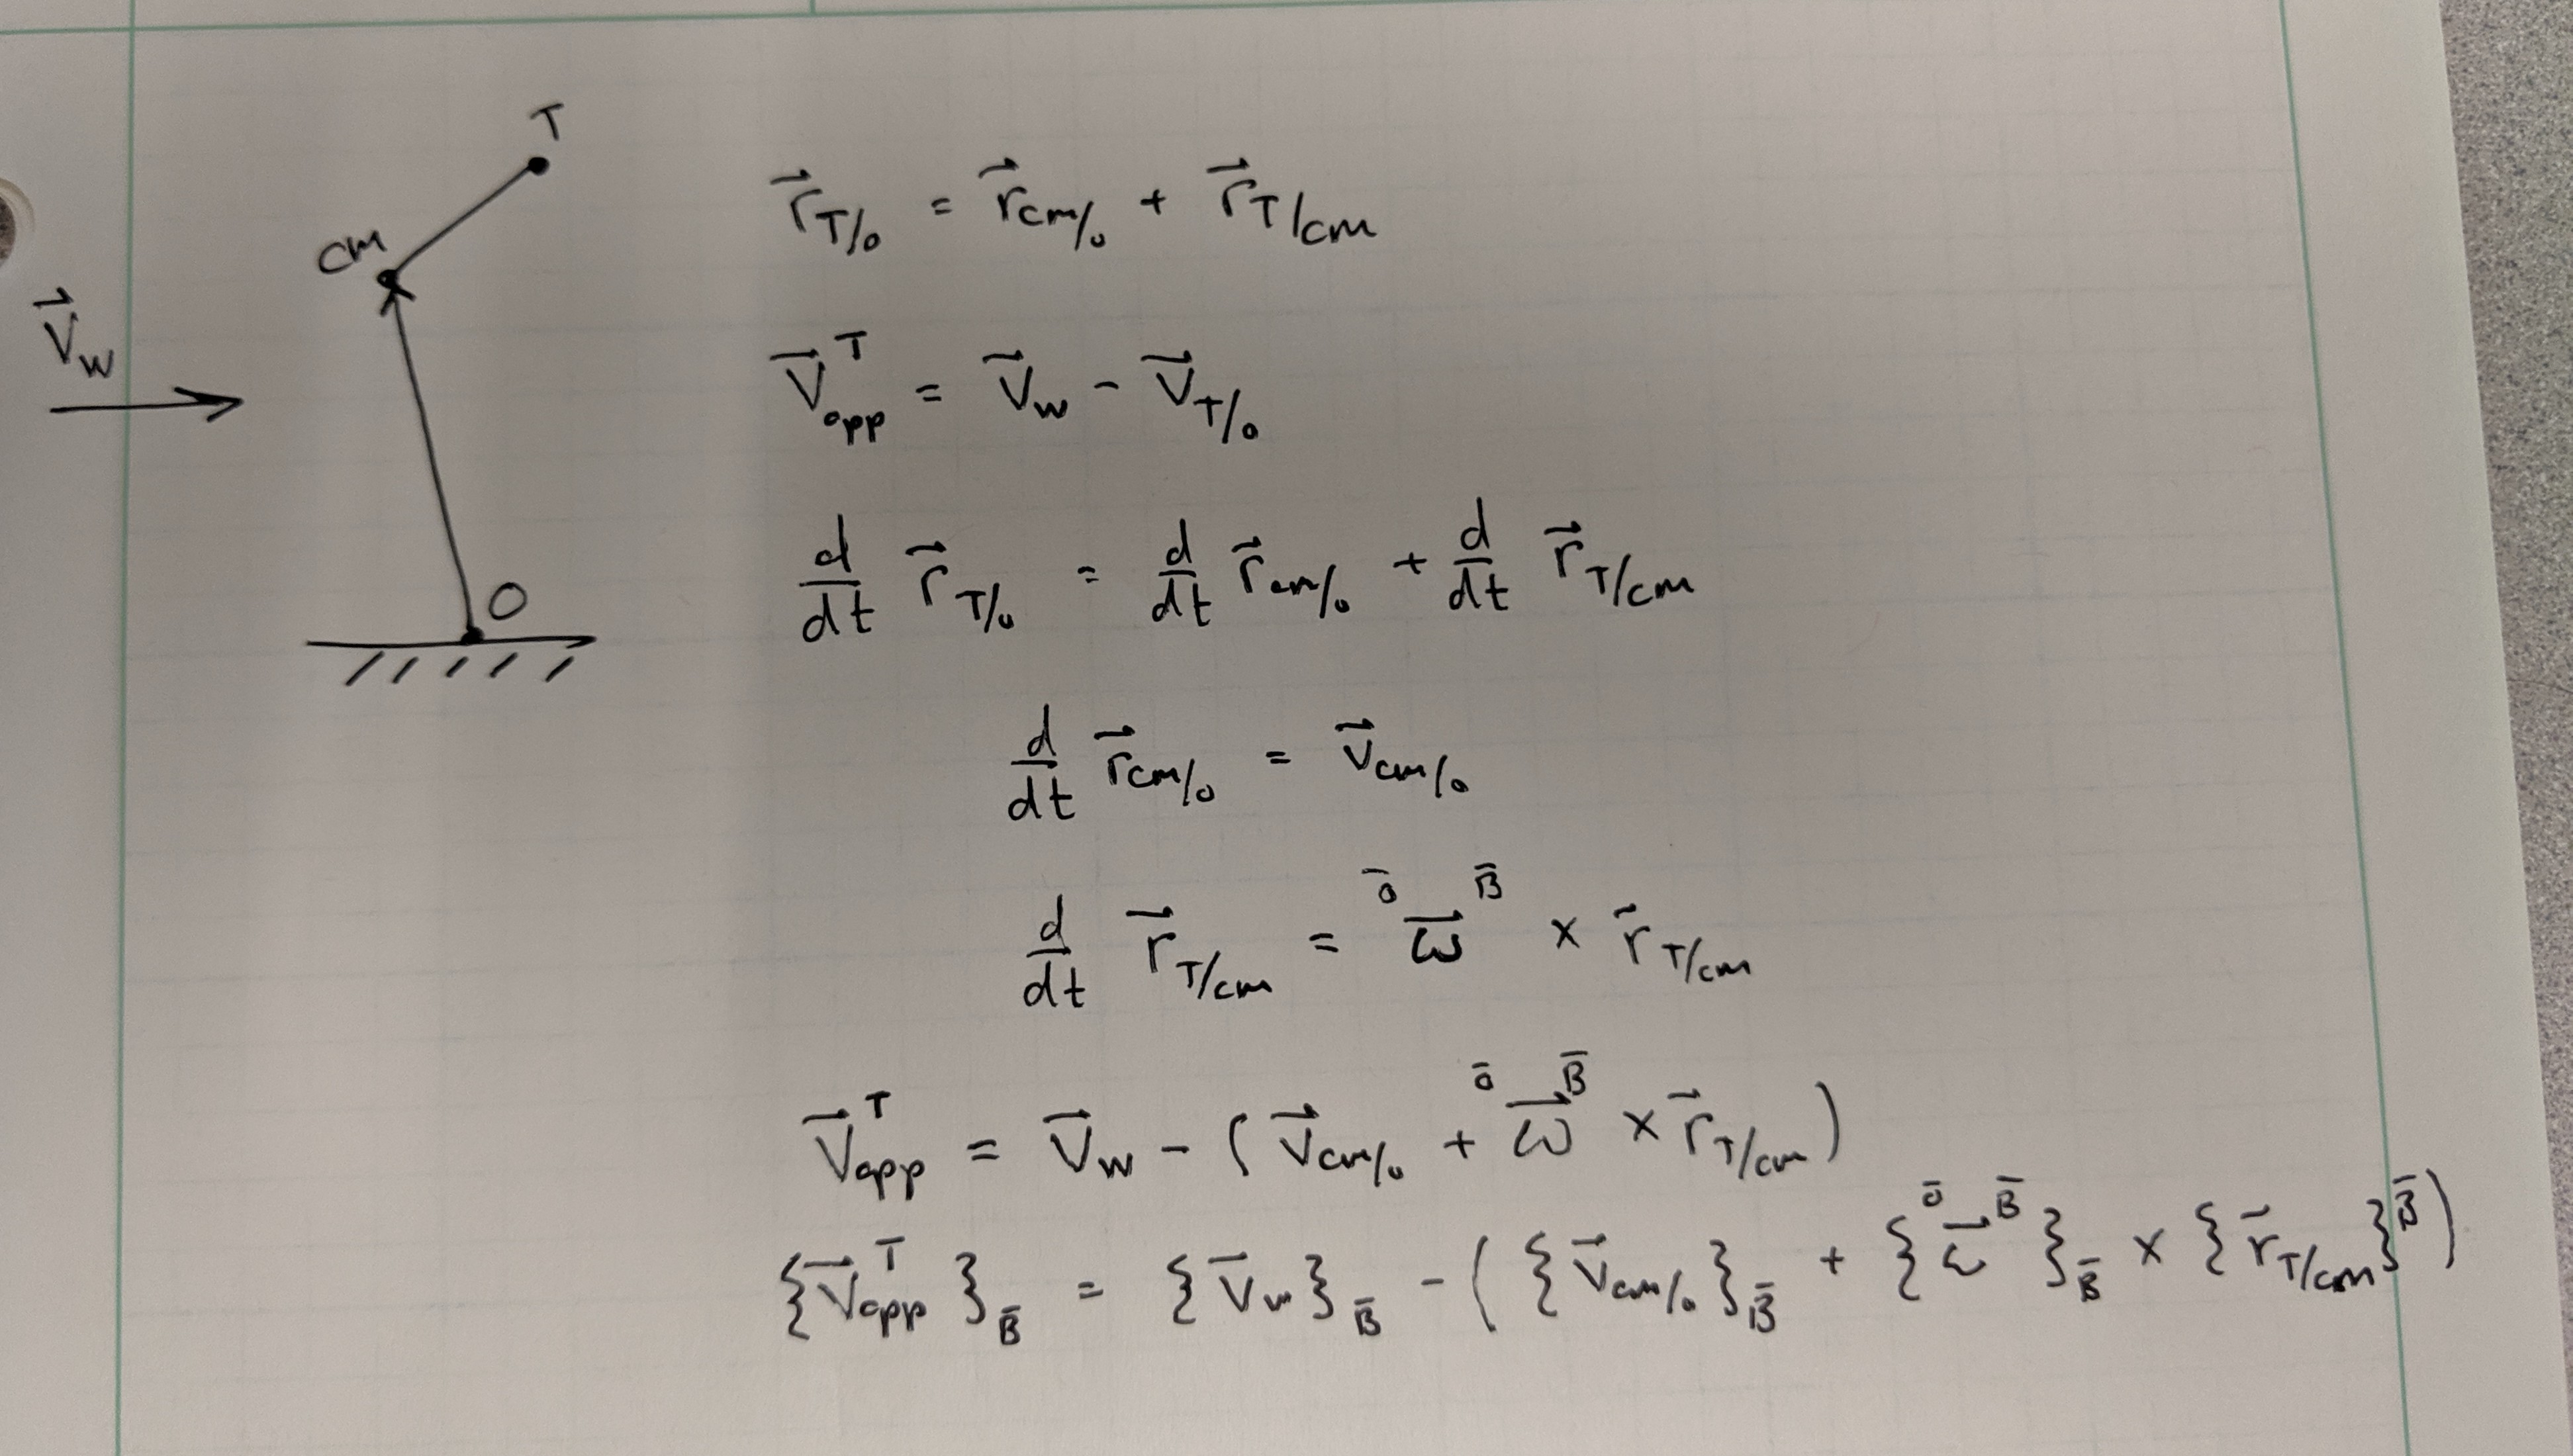 T
CM
V⃗_w
O
r⃗_{T/o} = r⃗_{cm/o} + r⃗_{T/cm}
V⃗^T_{app} = V⃗_w - V⃗_{T/o}
d/dt r⃗_{T/o} = d/dt r⃗_{cm/o} + d/dt r⃗_{T/cm}
d/dt r⃗_{cm/o} = V⃗_{cm/o}
d/dt r⃗_{T/cm} = ^{ō}ω⃗^{B̄} × r⃗_{T/cm}
V⃗^T_{app} = V⃗_w - ( V⃗_{cm/o} + ^{ō}ω⃗^{B̄} × r⃗_{T/cm} )
{V⃗^T_{app}}_{B̄} = {V⃗_w}_{B̄} - ( {V⃗_{cm/o}}_{B̄} + {^{ō}ω⃗^{B̄}}_{B̄} × {r⃗_{T/cm}}^{B̄} )